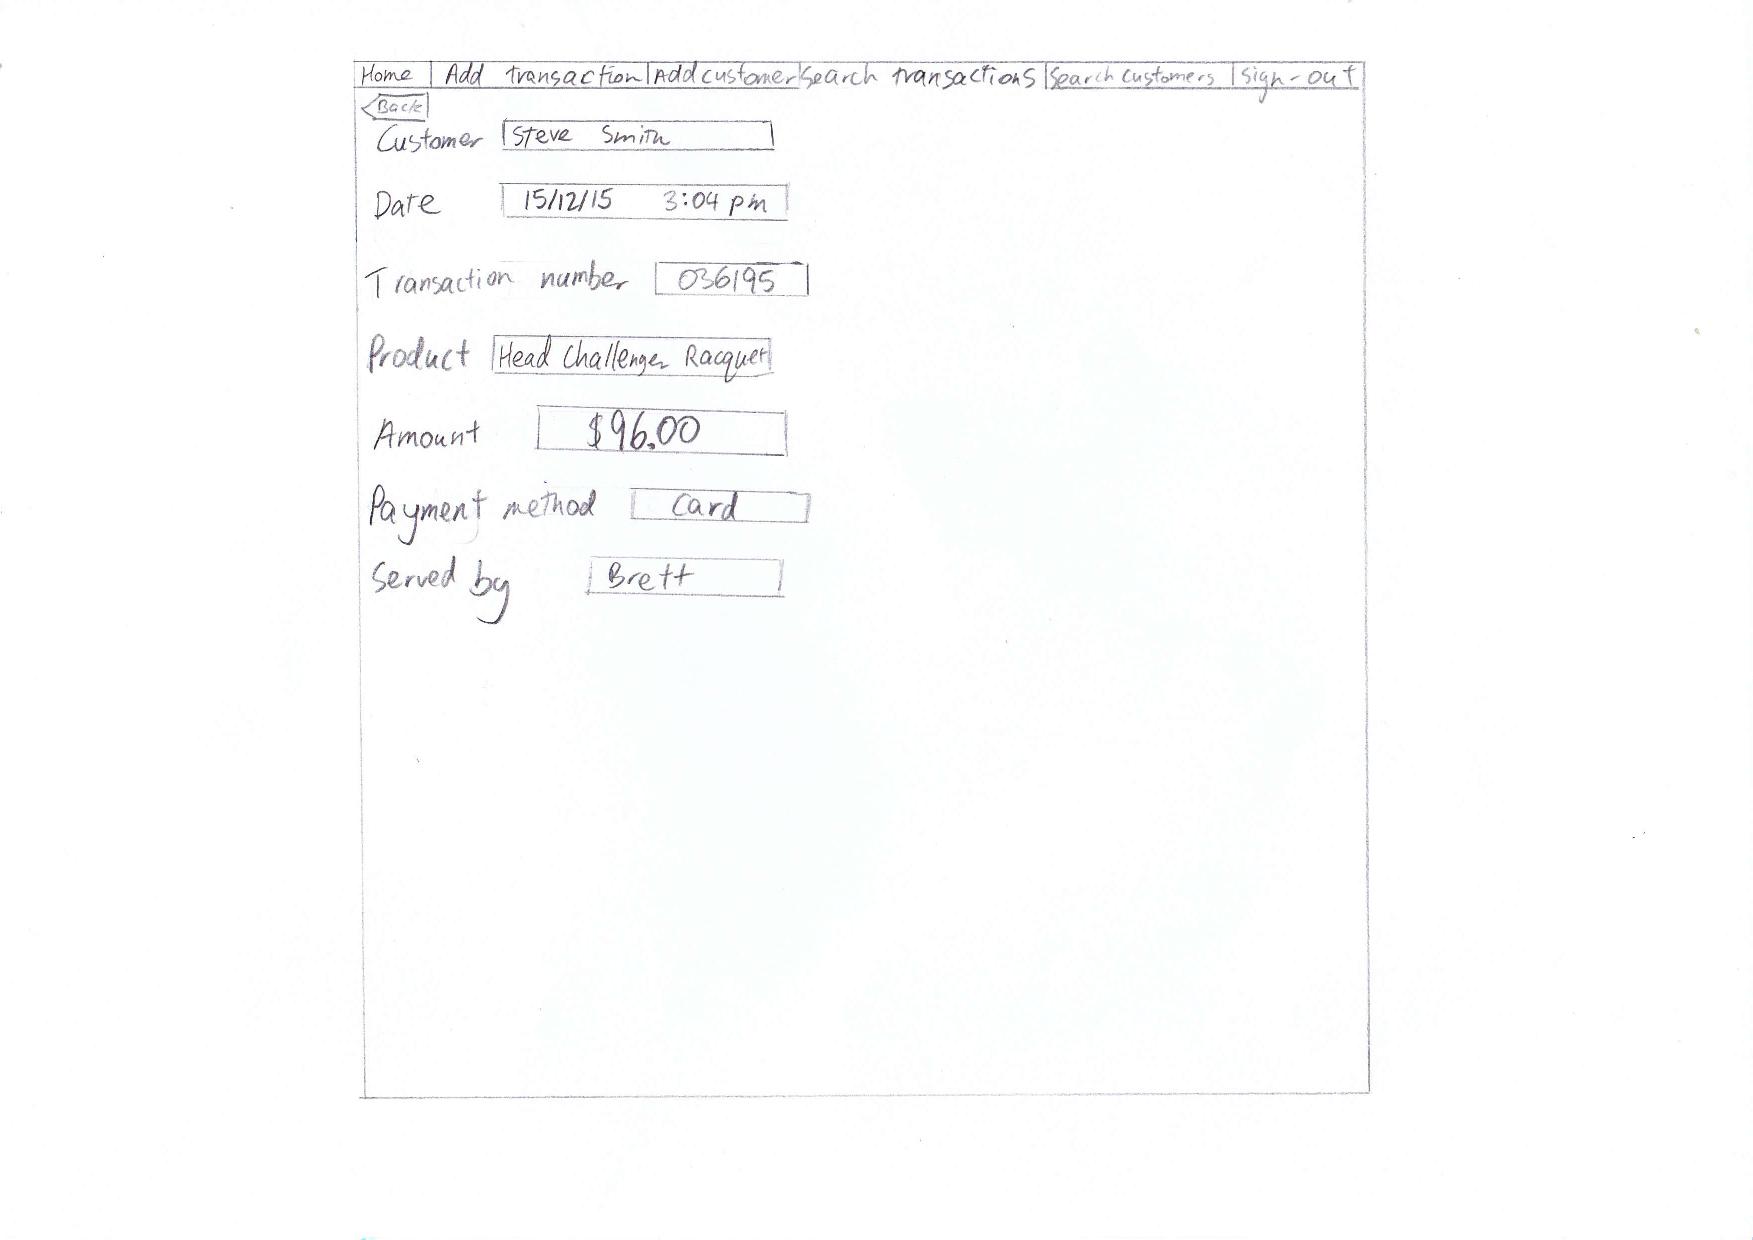 Home Add transaction Add customer Search transactions Search customers Sign-out
Back
Customer Steve Smith
Date 15/12/15 3:04 pm
Transaction number 036195
Product Head Challenger Racquet
Amount $96.00
Payment method Card
Served by Brett